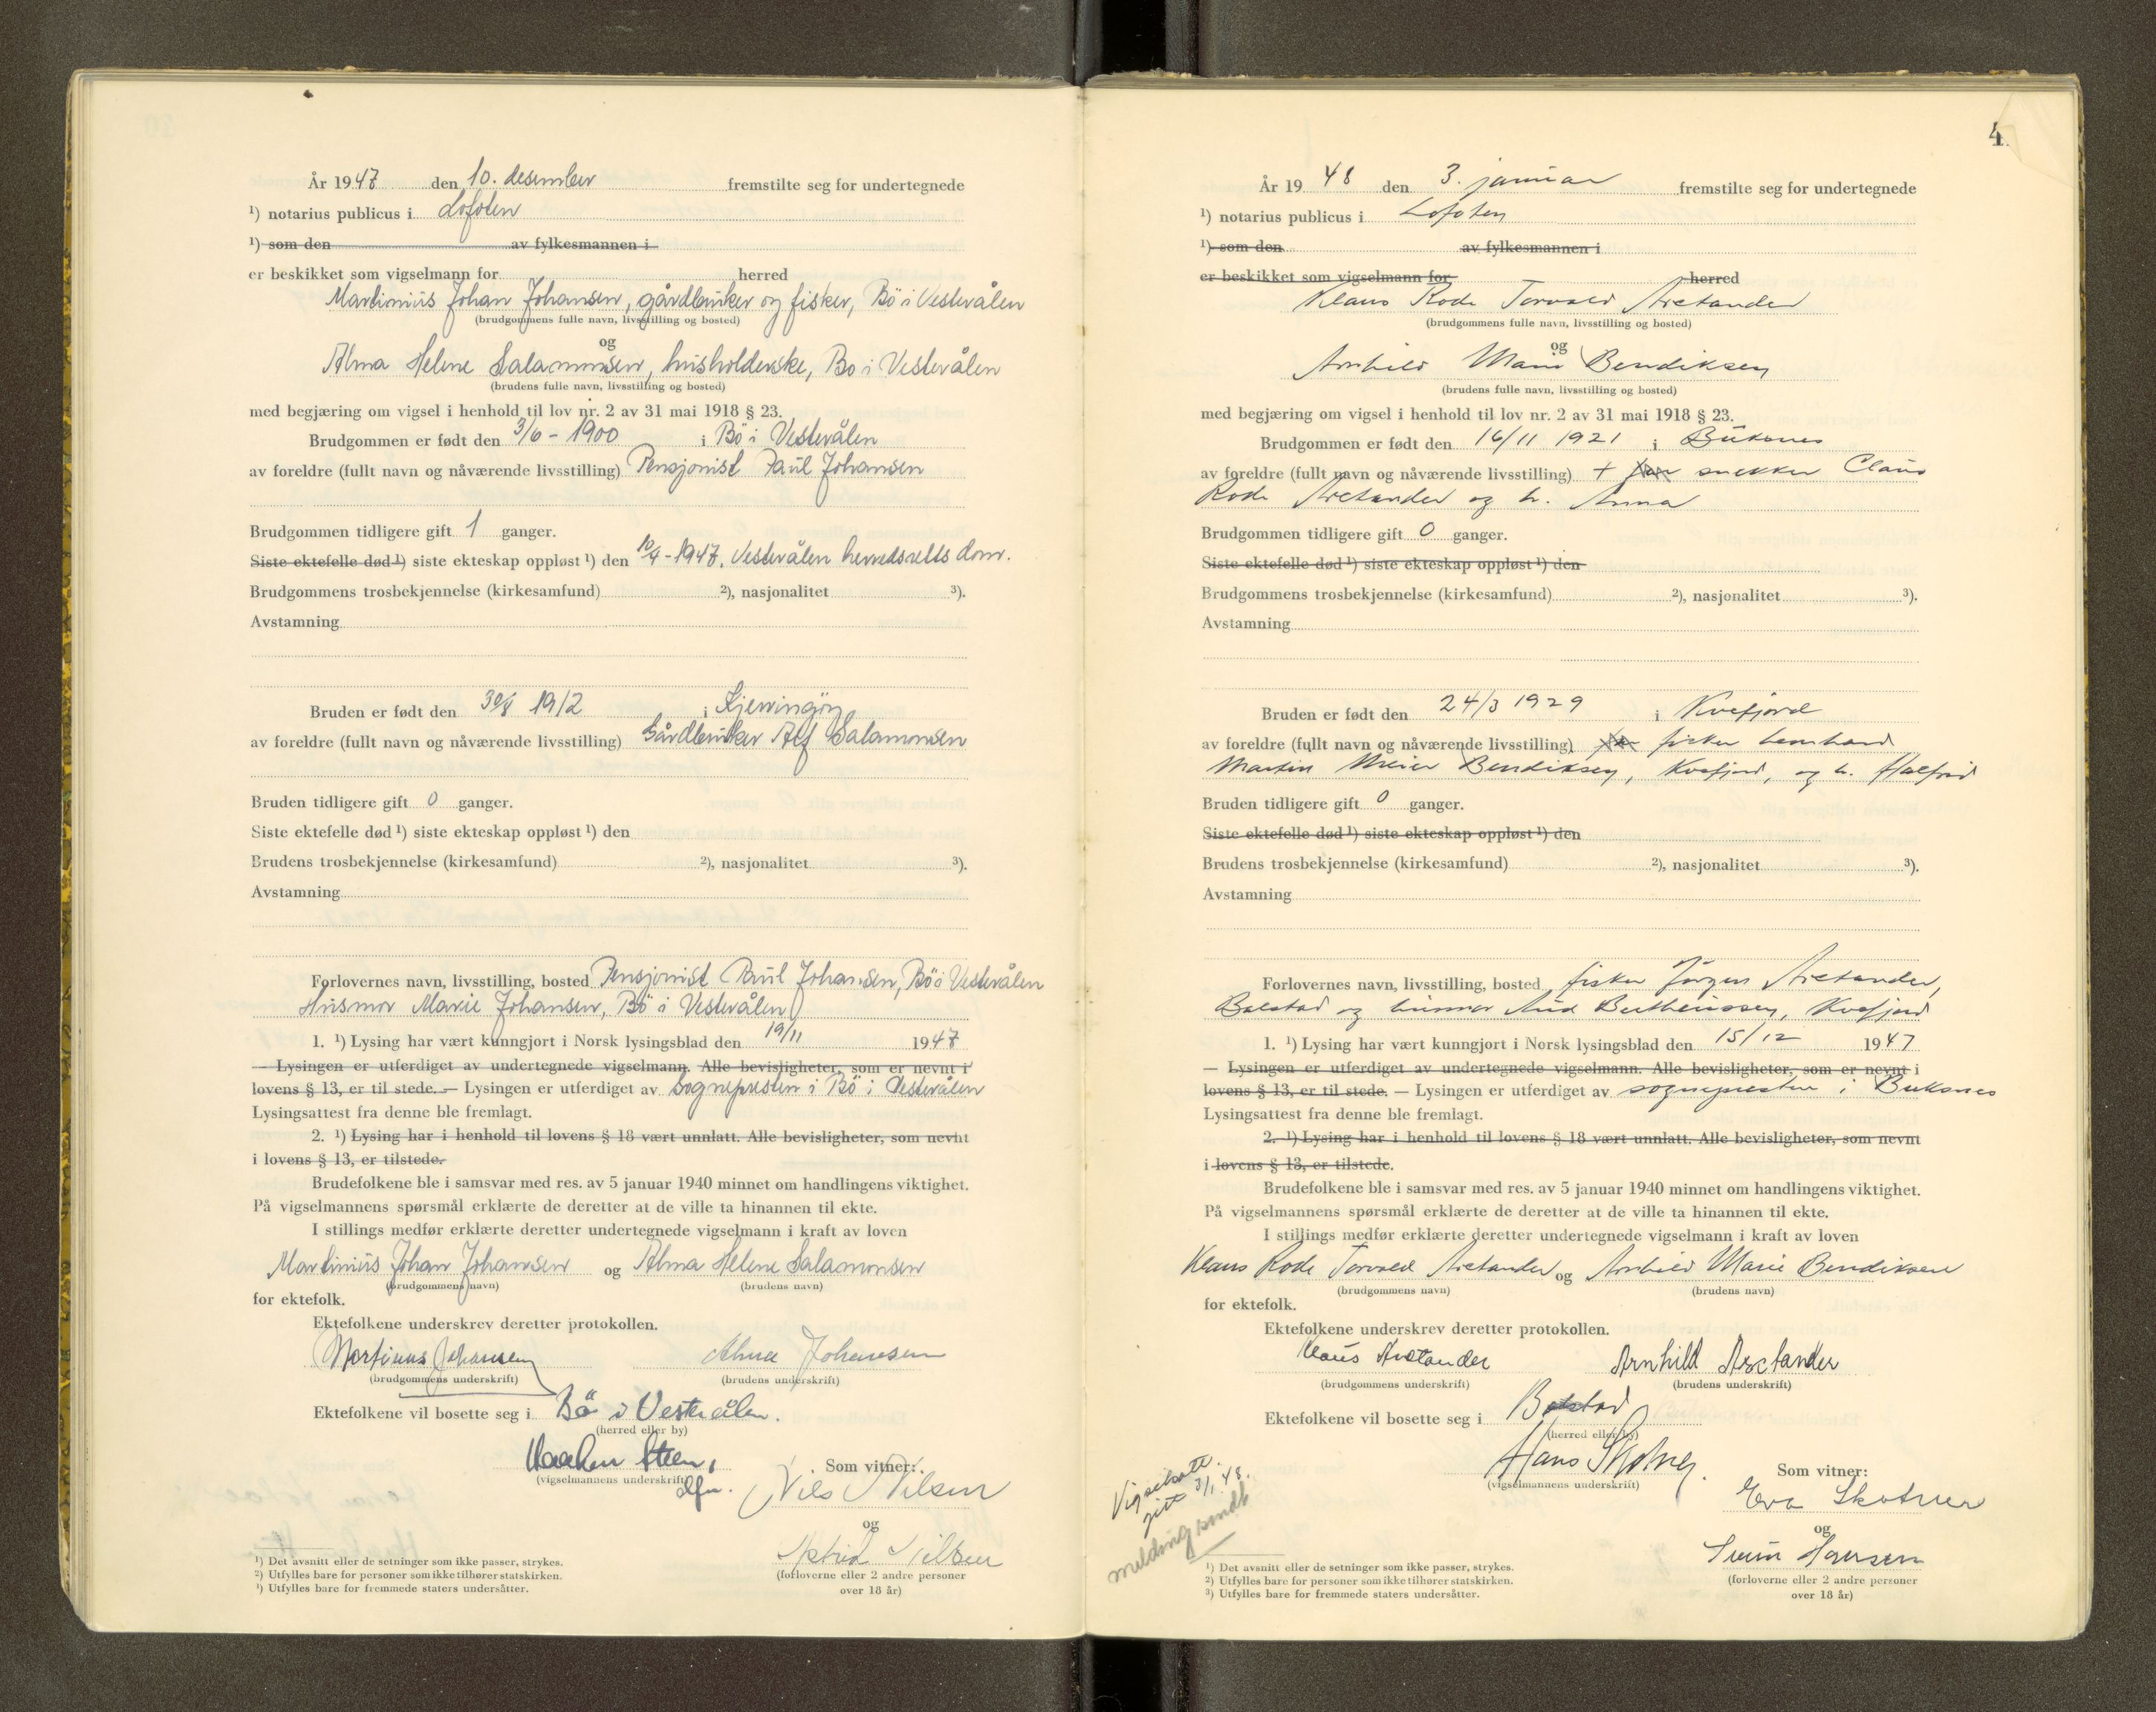 År 1947 den 10. desember fremstilte seg for undertegnede
¹) notarius publicus i Lofoten
¹) som den av fylkesmannen i
er beskikket som vigselmann for herred
Martinius Johan Johansen, gårdbruker og fisker, Bö i Vesterålen
(brudgommens fulle navn, livsstilling og bosted)
og
Alma Helene Salamonsen, husholderske, Bö i Vesterålen
(brudens fulle navn, livsstilling og bosted)
med begjæring om vigsel i henhold til lov nr. 2 av 31 mai 1918 § 23.
Brudgommen er født den 3/6 - 1900 i Bö i Vesterålen
av foreldre (fullt navn og nåværende livsstilling) Pensjonist Paul Johansen
Brudgommen tidligere gift 1 ganger.
Siste ektefelle død ¹) siste ekteskap oppløst ¹) den 10/4 - 1947, Vesterålen herredsretts dom.
Brudgommens trosbekjennelse (kirkesamfund) ²), nasjonalitet ³).
Avstamning
Bruden er født den 30/8 1912 i Kjerringöy
av foreldre (fullt navn og nåværende livsstilling) Gårdbruker Alf Salamonsen
Bruden tidligere gift 0 ganger.
Siste ektefelle død ¹) siste ekteskap oppløst ¹) den
Brudens trosbekjennelse (kirkesamfund) ²), nasjonalitet ³).
Avstamning
Forlovernes navn, livsstilling, bosted Pensjonist Paul Johansen, Bö i Vesterålen
Husmor Marie Johansen, Bö i Vesterålen
1. ¹) Lysing har vært kunngjort i Norsk lysingsblad den 19/11 1947
— Lysingen er utferdiget av undertegnede vigselmann. Alle bevisligheter, som er nevnt i
lovens § 13, er til stede. — Lysingen er utferdiget av Sognepresten i Bö i Vesterålen
Lysingsattest fra denne ble fremlagt.
2. ¹) Lysing har i henhold til lovens § 18 vært unnlatt. Alle bevisligheter, som nevnt
i lovens § 13, er tilstede.
Brudefolkene ble i samsvar med res. av 5 januar 1940 minnet om handlingens viktighet.
På vigselmannens spørsmål erklærte de deretter at de ville ta hinannen til ekte.
I stillings medfør erklærte deretter undertegnede vigselmann i kraft av loven
Martinius Johan Johansen og Alma Helene Salamonsen
(brudgommens navn) (brudens navn)
for ektefolk.
Ektefolkene underskrev deretter protokollen.
Martinus Johansen Alma Johansen
(brudgommens underskrift) (brudens underskrift)
Ektefolkene vil bosette seg i Bö i Vesterålen.
(herred eller by)
Haaken Steen, Som vitner:
(vigselmannens underskrift) dfm. Nils Nilsen
og
Astrid Nilsen
(forloverne eller 2 andre personer
over 18 år)
¹) Det avsnitt eller de setninger som ikke passer, strykes.
²) Utfylles bare for personer som ikke tilhører statskirken.
³) Utfylles bare for fremmede staters undersåtter.
4
År 1948 den 3. januar fremstilte seg for undertegnede
¹) notarius publicus i Lofoten
¹) som den av fylkesmannen i
er beskikket som vigselmann for herred
Klaus Rode Torvald Arctander
(brudgommens fulle navn, livsstilling og bosted)
og
Arnhild Marie Bendiksen
(brudens fulle navn, livsstilling og bosted)
med begjæring om vigsel i henhold til lov nr. 2 av 31 mai 1918 § 23.
Brudgommen er født den 16/11 1921 i Buksnes
av foreldre (fullt navn og nåværende livsstilling) + snekker Claus
Rode Arctander og h. Anna
Brudgommen tidligere gift 0 ganger.
Siste ektefelle død ¹) siste ekteskap oppløst ¹) den
Brudgommens trosbekjennelse (kirkesamfund) ²), nasjonalitet ³).
Avstamning
Bruden er født den 24/3 1929 i Kvefjord
av foreldre (fullt navn og nåværende livsstilling) fisker Leonhard
Martin Meier Bendiksen, Kvefjord, og h. Halfrid
Bruden tidligere gift 0 ganger.
Siste ektefelle død ¹) siste ekteskap oppløst ¹) den
Brudens trosbekjennelse (kirkesamfund) ²), nasjonalitet ³).
Avstamning
Forlovernes navn, livsstilling, bosted fisker Jørgen Arctander,
Bolstad og husmor Aud Bertheussen, Kvefjord
1. ¹) Lysing har vært kunngjort i Norsk lysingsblad den 15/12 1947
— Lysingen er utferdiget av undertegnede vigselmann. Alle bevisligheter, som er nevnt i
lovens § 13, er til stede. — Lysingen er utferdiget av sognepresten i Buksnes
Lysingsattest fra denne ble fremlagt.
2. ¹) Lysing har i henhold til lovens § 18 vært unnlatt. Alle bevisligheter, som nevnt
i lovens § 13, er tilstede.
Brudefolkene ble i samsvar med res. av 5 januar 1940 minnet om handlingens viktighet.
På vigselmannens spørsmål erklærte de deretter at de ville ta hinannen til ekte.
I stillings medfør erklærte deretter undertegnede vigselmann i kraft av loven
Klaus Rode Torvald Arctander og Arnhild Marie Bendiksen
(brudgommens navn) (brudens navn)
for ektefolk.
Ektefolkene underskrev deretter protokollen.
Klaus Arctander Arnhild Arctander
(brudgommens underskrift) (brudens underskrift)
Ektefolkene vil bosette seg i Bolstad
(herred eller by)
Vigselsatt. Hans Skotner. Som vitner:
gitt 3/1.48. (vigselmannens underskrift) Eva Skotner
melding sendt og
Svein Hansen
(forloverne eller 2 andre personer
over 18 år)
¹) Det avsnitt eller de setninger som ikke passer, strykes.
²) Utfylles bare for personer som ikke tilhører statskirken.
³) Utfylles bare for fremmede staters undersåtter.